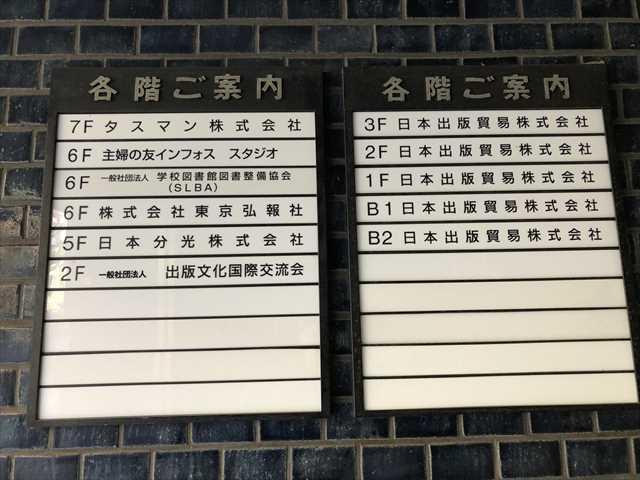 各階ご案内
7F タスマン株式会社
6F 主婦の友インフォス スタジオ
6F 一般社団法人 学校図書館図書整備協会
(SLBA)
6F 株式会社東京弘報社
5F 日本分光株式会社
2F 一般社団法人 出版文化国際交流会
各階ご案内
3F 日本出版貿易株式会社
2F 日本出版貿易株式会社
1F 日本出版貿易株式会社
B1 日本出版貿易株式会社
B2 日本出版貿易株式会社